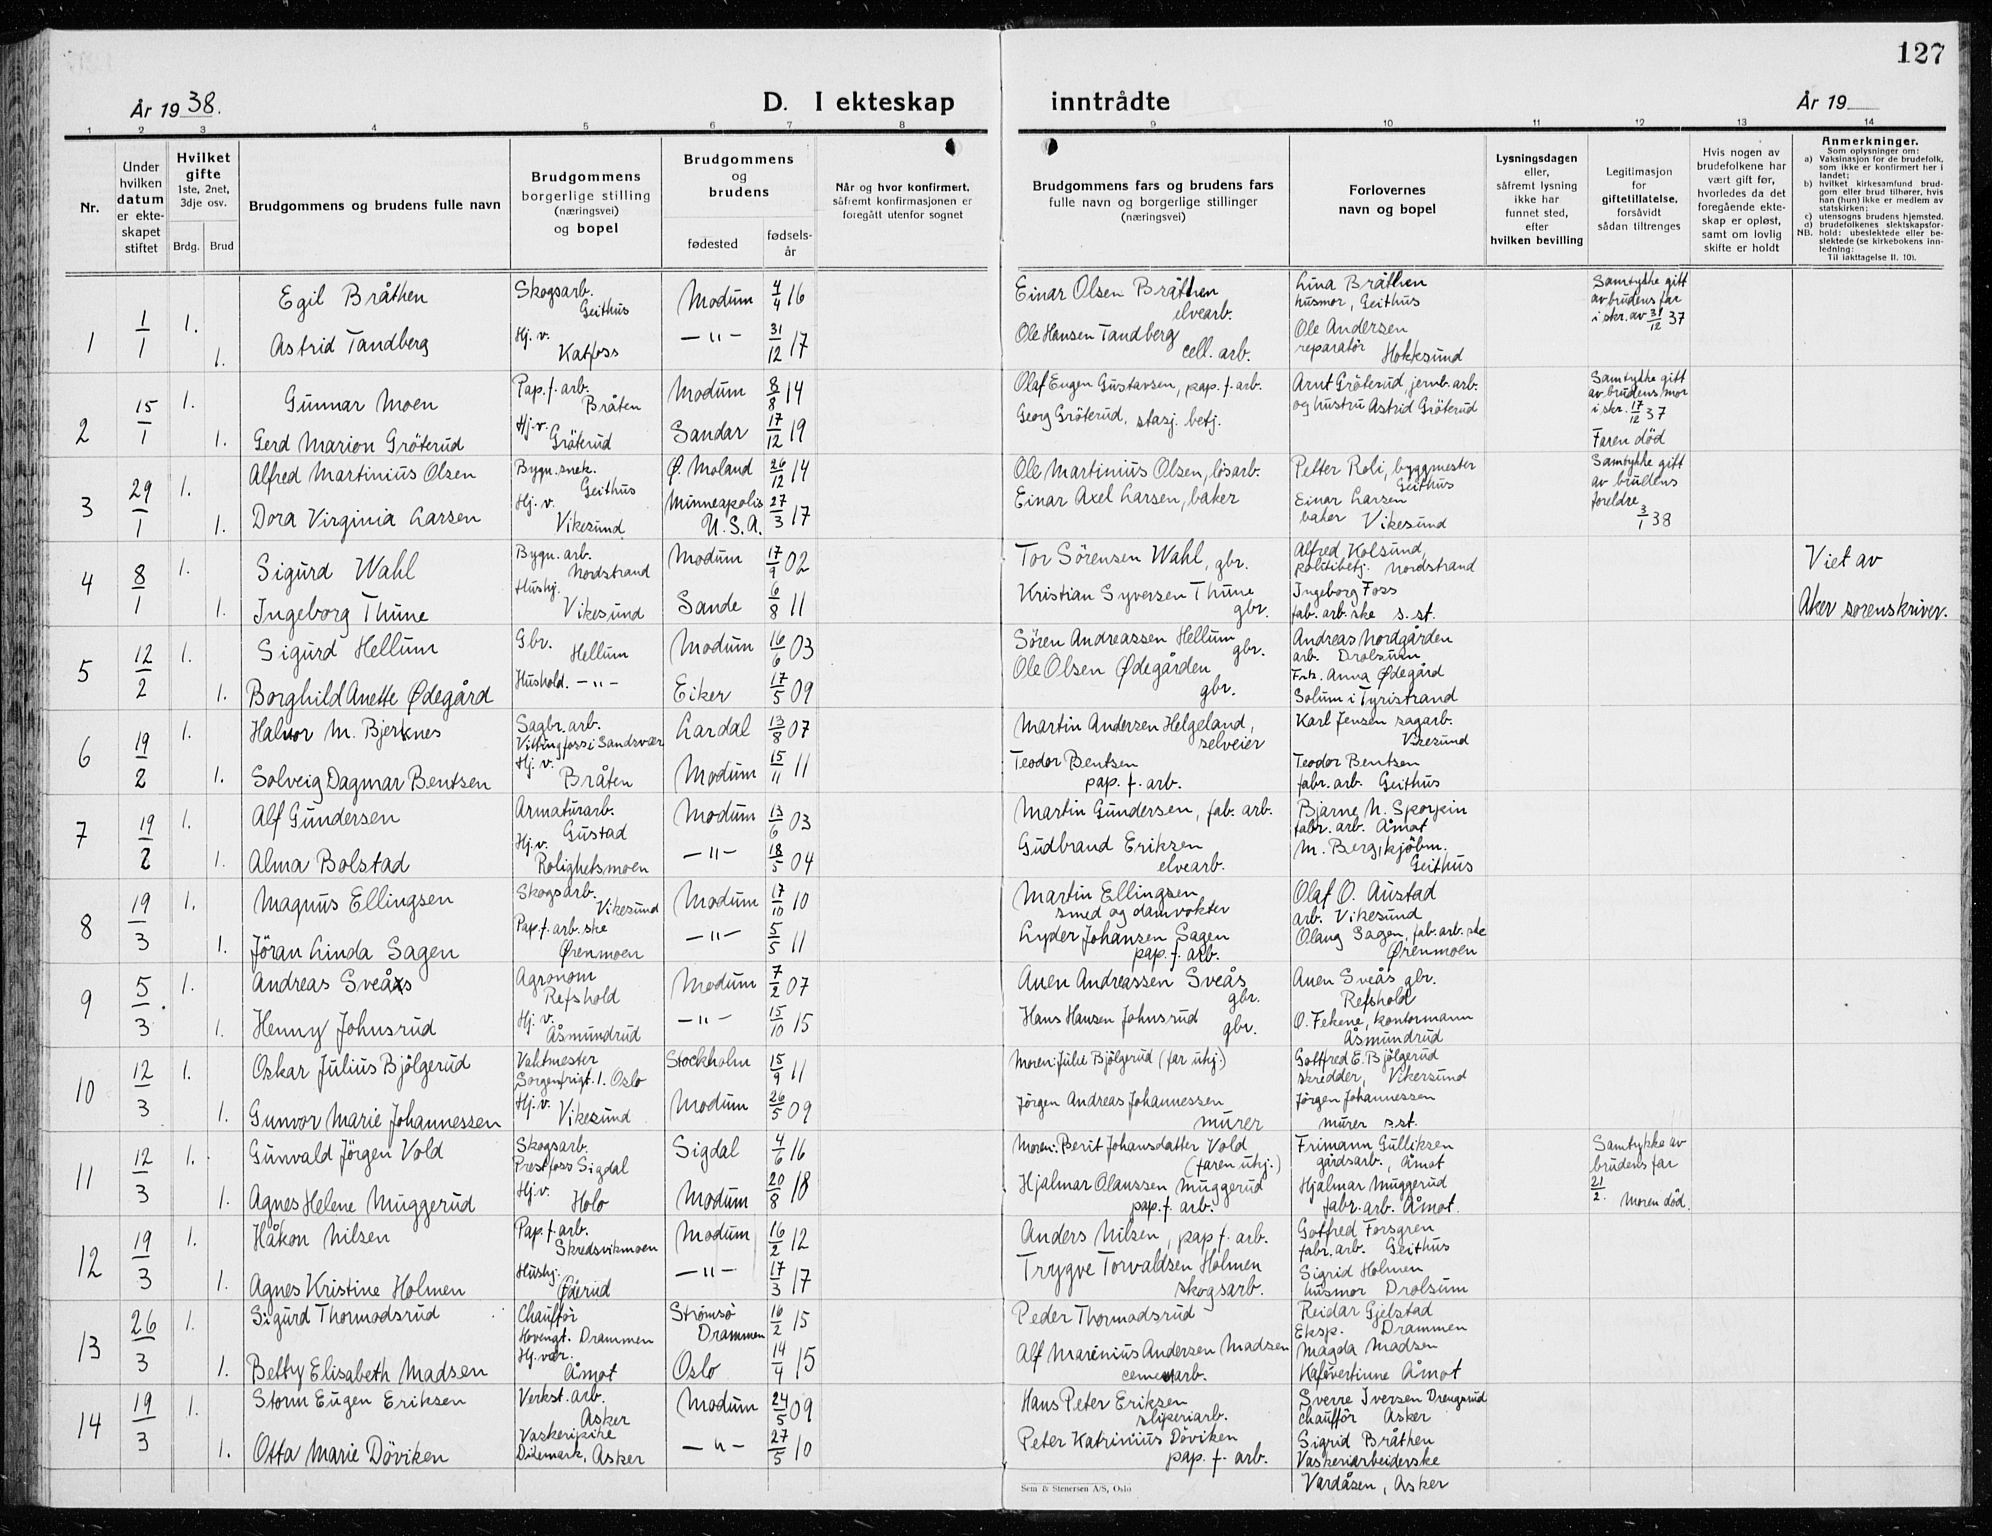 127
År 1938.
D. I ekteskap inntrådte
År 19
1 2 3 4 5 6 7 8 9 10 11 12 13 14
Nr.
Under
hvilken
datum
er ekte-
skapet
stiftet
Hvilket
gifte
1ste, 2net,
3dje osv.
Brdg. Brud
Brudgommens og brudens fulle navn
Brudgommens
borgerlige stilling
(næringsvei)
og bopel
Brudgommens
og
brudens
fødested
fødsels-
år
Når og hvor konfirmert,
såfremt konfirmasjonen er
foregått utenfor sognet
Brudgommens fars og brudens fars
fulle navn og borgerlige stillinger
(næringsvei)
Forlovernes
navn og bopel
Lysningsdagen
eller,
såfremt lysning
ikke har
funnet sted,
efter
hvilken bevilling
Legitimasjon
for
giftetillatelse,
forsåvidt
sådan tiltrenges
Hvis nogen av
brudefolkene har
vært gift før,
hvorledes da det
foregående ekte-
skap er opløst,
samt om lovlig
skifte er holdt
Anmerkninger.
Som oplysninger om:
a) Vaksinasjon for de brudefolk,
som ikke er konfirmert her i
landet;
b) hvilket kirkesamfund brud-
gom eller brud tilhører, hvis
han (hun) ikke er medlem av
statskirken;
c) utensogns brudens hjemsted.
d) brudefolkenes slektskapsfor-
NB. hold: ubeslektede eller be-
slektede (se kirkebokens inn-
ledning:
Til iakttagelse II. 10).
1 1/1 1. Egil Bråthen Skogsarb. Geithus Modum 4/4 16 Einar Olsen Bråthen elvearb. Lina Bråthen husmor, Geithus
Samtykke gitt av brudens far i skr. av 31/12 37
1. Astrid Tandberg Hj. v. Katfoss —"— 31/12 17 Ole Hansen Tandberg cell. arb. Ole Andersen reparatør Hokksund
2 15/1 1. Gunnar Moen Pap. f. arb. Bråten Modum 8/8 14 Olaf Eugen Gustavsen, pap. f. arb. Arnt Gröterud, jernb. arb. og hustru Astrid Gröterud
Samtykke gitt av brudens mor i skr. 17/12 37 Faren död
1. Gerd Marion Gröterud Hj. v. Gröterud Sandar 17/12 19 Georg Gröterud, stasj. betj.
3 29/1 1. Alfred Martinius Olsen Bygn. snek. Geithus Ø. Moland 26/12 14 Ole Martinius Olsen, løsarb. Petter Roli, byggmester Geithus
Samtykke gitt av brudens foreldre 3/1 38
1. Dora Virginia Larsen Hj. v. Vikesund Minneapolis U.S.A. 27/3 17 Einar Axel Larsen, baker Einar Larsen baker Vikesund
4 8/1 1. Sigurd Wahl Bygn. arb. Nordstrand Modum 17/9 02 Tor Sörensen Wahl, gbr. Alfred Kolsund, politibetj. Nordstrand
Viet av Aker sorenskriver.
1. Ingeborg Thune Hushj. Vikesund Sande 6/8 11 Kristian Syversen Thune gbr. Ingeborg Foss fab. arb. ske s. st.
5 12/2 1. Sigurd Hellum Gbr. Hellum Modum 16/6 03 Sören Andreassen Hellum gbr. Andreas Nordgården arb. Drolsum
1. Borghild Anette Ødegård Hushold. —"— Eiker 17/5 09 Ole Olsen Ødegården gbr. Frk. Anna Ødegård Solum i Tyristrand
6 19/2 1. Halvor M. Bjerknes Sagbr. arb. Vittingfoss i Sandsvær Lardal 13/8 07 Martin Andersen Helgeland, selveier Karl Jensen sagarb. Vikesund
1. Solveig Dagmar Bentsen Hj. v. Bråten Modum 15/11 11 Teodor Bentsen pap. f. arb. Teodor Bentsen fabr. arb. Geithus
7 19/2 1. Alf Gundersen Armaturarb. Gustad Modum 13/6 03 Martin Gundersen, fab. arb. Bjarne N. Skorpin fabr. arb. Åmot
1. Alma Bolstad Hj. v. Rolighetsmoen —"— 18/5 04 Gudbrand Eriksen elvearb. M. Berg, kjöbm. Geithus
8 19/3 1. Magnus Ellingsen Skogsarb. Vikesund Modum 17/10 10 Martin Ellingsen smed og damvokter Olaf O. Austad arb. Vikesund
1. Jöran Linda Sagen Pap. f. arb. ske Ørenmoen —"— 5/5 11 Lyder Johansen Sagen pap. f. arb. Olaug Sagen, fab. arb. ske Ørenmoen
9 5/3 1. Andreas Sveås Agronom Refshold Modum 7/2 07 Auen Andreassen Sveås gbr. Auen Sveås gbr. Refshold
1. Henny Johnsrud Hj. v. Åsmundrud —"— 15/10 15 Hans Hansen Johnsrud gbr. O. Fekene, kontormann Åsmundrud
10 12/3 1. Oskar Julius Bjölgerud Vaktmester Sorgenfrigt. 1. Oslo Stockholm 15/9 11 Moren: Julie Bjölgerud (far uhj.) Gottfred E. Bjölgerud skredder, Vikersund
1. Gunvor Marie Johannessen Hj. v. Vikesund Modum 26/5 09 Jörgen Andreas Johannessen murer Jörgen Johannessen murer s.st.
11 12/3 1. Gunvald Jörgen Vold Skogsarb. Prestfoss Sigdal Sigdal 4/6 16 Moren: Berit Johansdatter Vold (faren uhj.) Frimann Gulliksen gårdsarb., Åmot
Samtykke av brudens far 21/2. Moren död.
1. Agnes Helene Muggerud Hj. v. Holo Modum 20/8 18 Hjalmar Olaussen Muggerud pap. f. arb. Hjalmar Muggerud fabr. arb. Åmot.
12 19/3 1. Håkon Nilsen Pap. f. arb. Skredsvikmoen Modum 16/2 12 Anders Nilsen, pap. f. arb. Gotfred Forsgren fabr. arb. Geithus
1. Agnes Kristine Holmen Hushj. Øderud —"— 17/3 17 Trygve Torvaldsen Holmen skogsarb. Sigrid Holmen husmor Drolsum
13 26/3 1. Sigurd Thormodsrud Chauffør Hovengt. Drammen Strømsö Drammen 16/2 15 Peder Thormodsrud Reidar Gjelstad Eksp. Drammen
1. Betty Elisabeth Madsen Hj. vær. Åmot Oslo 14/4 15 Alf Marinius Andersen Madsen cementarb. Magda Madsen Kafévertinne Åmot
14 19/3 1. Storm Eugen Eriksen Verkst. arb. Asker Modum 24/5 09 Hans Peter Eriksen sliperiarb. Sverre Iversen Drengsrud chauffør Asker
1. Otta Marie Döviken Vaskeripike Dikemark, Asker —"— 27/5 10 Peter Katrinius Döviken pap. f. arb. Sigrid Bråthen Vaskeriarbeiderske Vardåsen, Asker
Sem & Stenersen A/S, Oslo